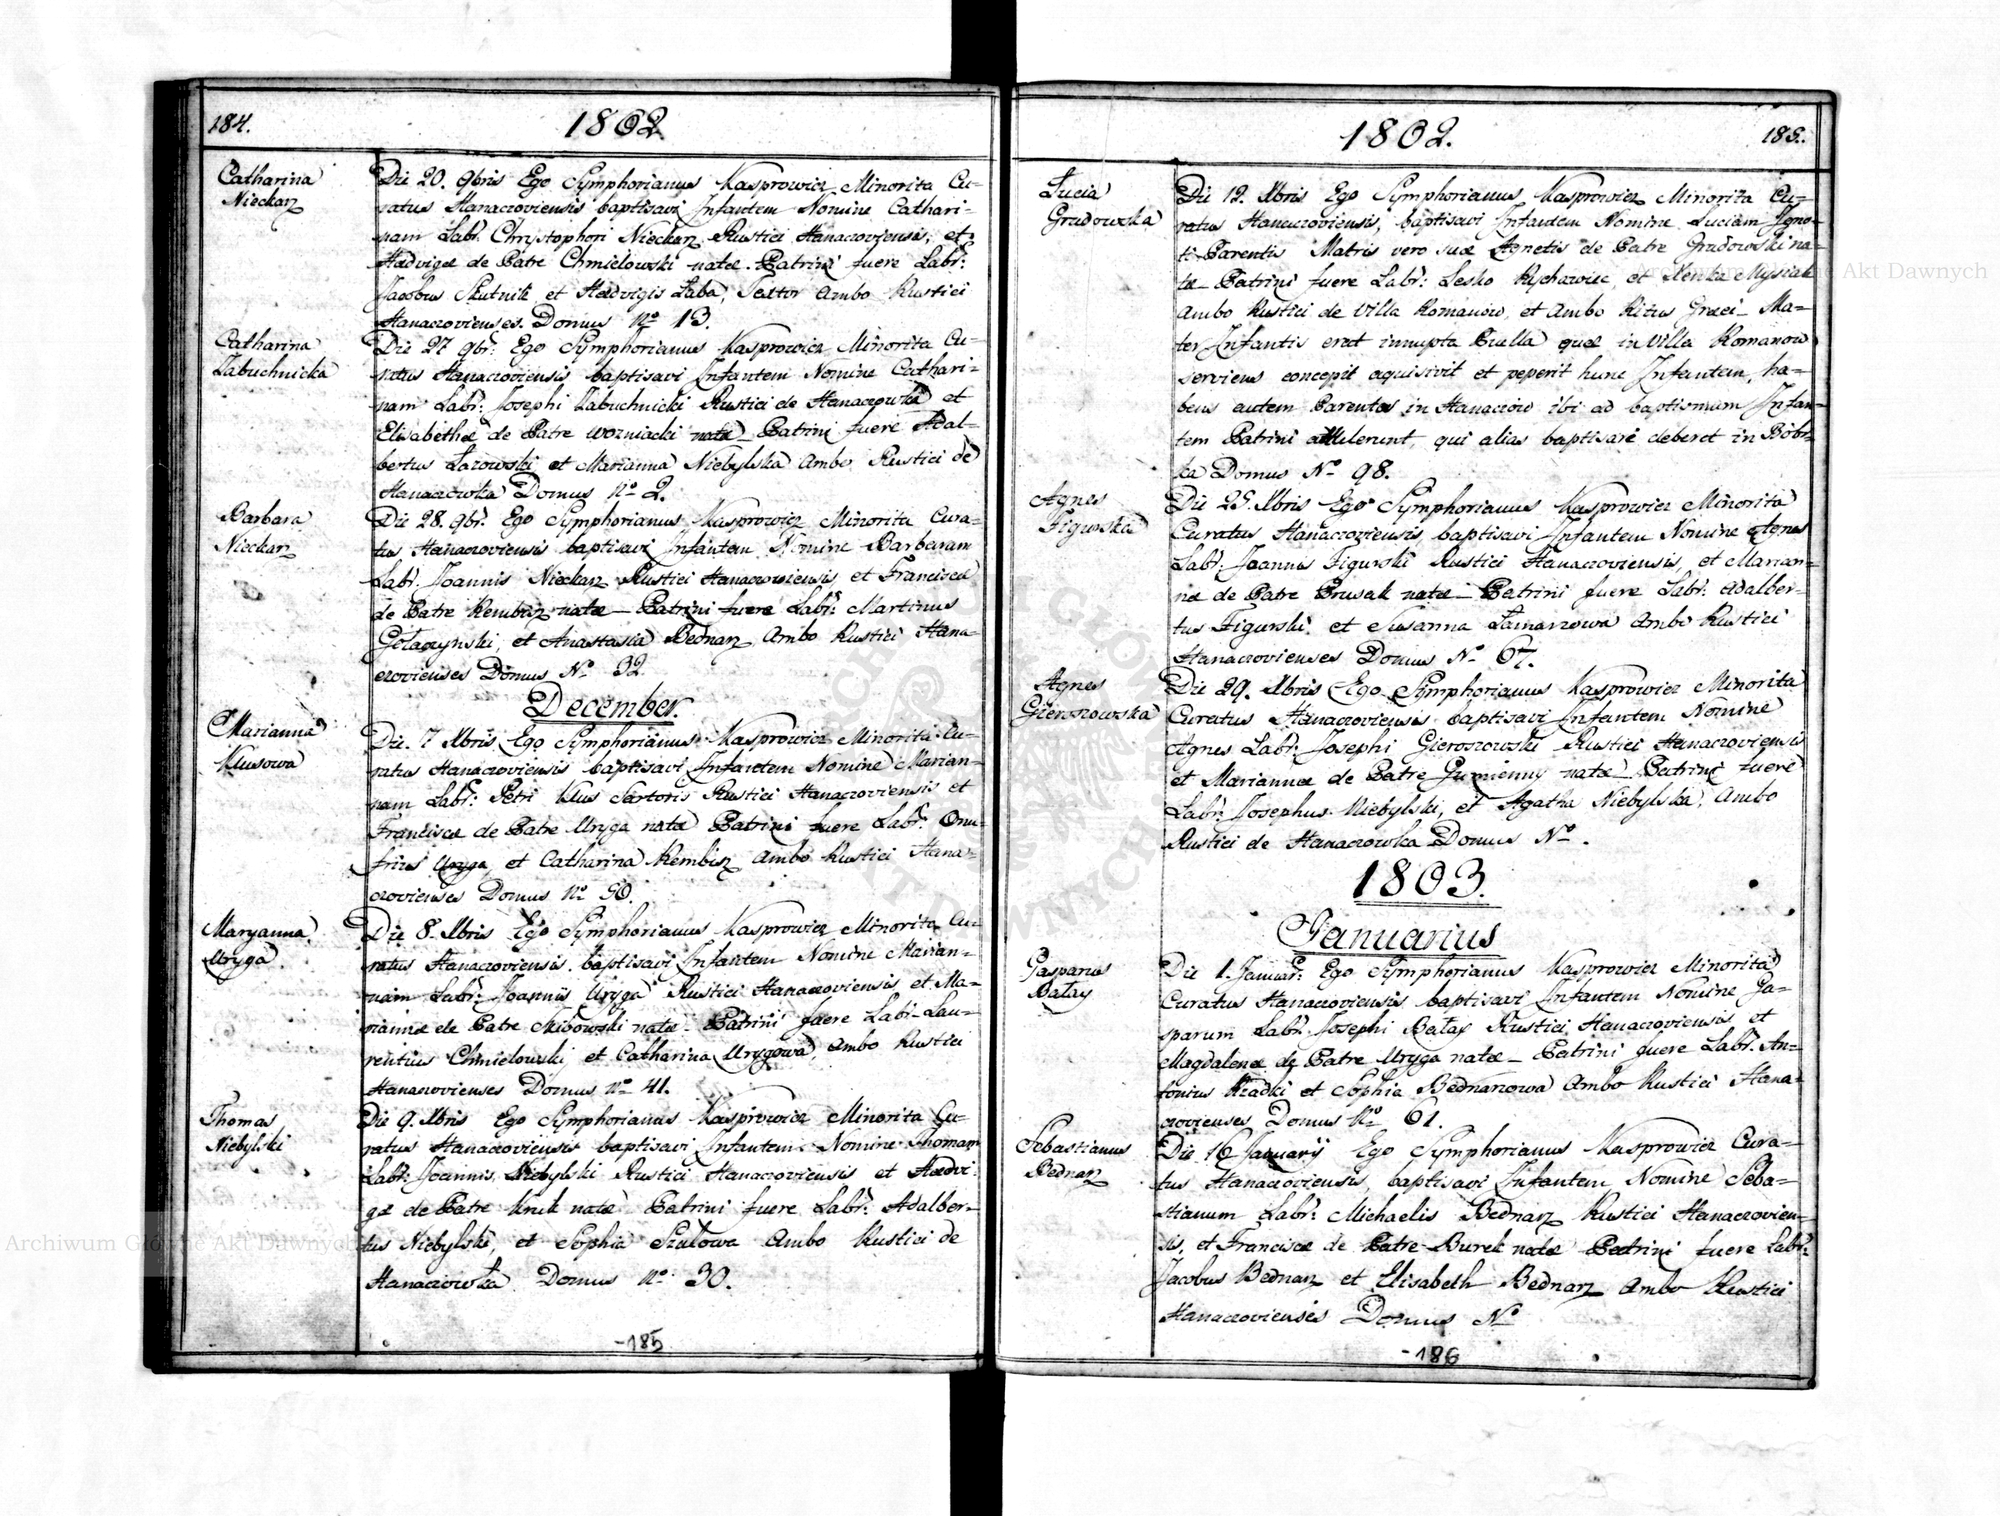 184.
1802.
Catharina
Nieckarz
Die 20. 9bris Ego Symphorianus Kasprowicz Minorita Cu-
ratus Hanaczoviensis baptisavi Infantem Nomine Cathari-
nam Labr: Chrystophori Nieckarz Rustici Hanaczoviensis, et
Hedvigæ de Patre Chmielowski natæ. Patrini fuere Labr:
Jacobus Skutnik et Hedvigis Laba, Textor Ambo Rustici
Hanaczovienses. Domus No 13.
Catharina
Zabuchnicka
Die 27 9br: Ego Symphorianus Kasprowicz Minorita Cu-
ratus Hanaczoviensis baptisavi Infantem Nomine Cathari-
nam Labr: Josephi Zabuchnicki Rustici de Hanaczowka et
Elisabethæ de Patre Wozniacki natæ Patrini fuere Adal-
bertus Łazowski et Marianna Niebylska Ambo Rustici de
Hanaczowka Domus No 2.
Barbara
Nieckarz
Die 28. 9br. Ego Symphorianus Kasprowicz Minorita Cura-
tus Hanaczoviensis baptisavi Infantem Nomine Barbaram
Labr. Joannis Nieckarz Rustici Hanaczoviensis et Francisca
de Patre Rembisz natæ Patrini fuere Labr: Martinus
Gołaczynski, et Anastasia Bednarz Ambo Rustici Hana-
czovienses Domus No 32
December.
Marianna
Klusowa
Die. 7 Xbris Ego Symphorianus Kasprowicz Minorita Cu-
ratus Hanaczoviensis baptisavi Infantem Nomine Marian-
nam Labr: Petri Klus Sartoris Rustici Hanaczoviensis et
Francisca de Patre Uryga natæ Patrini fuere Labr. Onu-
frius Uryga, et Catharina Rembisz Ambo Rustici Hana-
czovienses Domus No 50.
Maryanna
Uryga
Die 8. Xbris Ego Symphorianus Kasprowicz Minorita Cu-
ratus Hanaczoviensis. baptisavi Infantem Nomine Marian-
nam Labr: Joannis Uryga Rustici Hanaczoviensis et Ma-
riannæ de Patre Skibowski natæ. Patrini fuere Labr. Lau-
rentius Chmielowski, et Catharina Urygowa, Ambo Rustici
Hanaczovienses Domus No 41.
Thomas
Niebylski
Die 9. Xbris Ego Symphorianus Kasprowicz Minorita Cu-
ratus Hanaczoviensis baptisavi Infantem Nomine Thomam
Labr: Joannis Niebylski Rustici Hanaczoviensis et Hedvi-
gæ de Patre Kruk natæ Patrini fuere Labr: Adalber-
tus Niebylski, et Sophia Szalowa Ambo Rustici de
Hanaczowka Domus No 30.
-185
1802.
185.
Lucia
Grudowska
Die 12. Xbris Ego Symphorianus Kasprowicz Minorita Cu-
ratus Hanaczoviensis, baptisavi Infantem Nomine Luciam Igno-
ti Parentis Matris vero suæ Agnetis de Patre Grudowski na-
tæ Patrini fuere Labr: Lesko Rychawiec, et Xenka Mysiak
Ambo Rustici de Villa Romanow, et Ambo Ritus Græci Ma-
ter Infantis erat innupta Puella quæ in Villa Romanow
serviens concepit aquisivit et peperit hunc Infantem, ha-
bens autem Parentes in Hanaczow ibi ad baptismum Infan-
tem Patrini attulerunt, qui alias baptisari deberet in Bobr-
ka Domus No 98.
Agnes
Figurska
Die 25. Xbris Ego Symphorianus Kasprowicz Minorita
Curatus Hanaczoviensis baptisavi Infantem Nomine Agnes
Labr: Joannis Figurski Rustici Hanaczoviensis, et Marian-
næ de Patre Prusak natæ Patrini fuere Labr: Adalber-
tus Figurski, et Susanna Łamarzowa Ambo Rustici
Hanaczovienses Domus No 67.
Agnes
Gieroszowska
Die 29. Xbris Ego Symphorianus Kasprowicz Minorita
Curatus Hanaczoviensis baptisavi Infantem Nomine
Agnes Labr: Josephi Gieroszowski Rustici Hanaczoviensis
et Mariannæ de Patre Gumienny natæ Patrini fuere
Labr: Josephus Niebylski, et Agatha Niebylska, Ambo
Rustici de Hanaczowka Domus No.
1803.
Januarius
Gasparus
Bałay
Die 1. Januar: Ego Symphorianus Kasprowicz Minorita
Curatus Hanaczoviensis baptisavi Infantem Nomine Ga-
sparum Labr. Josephi Bałay Rustici Hanaczoviensis et
Magdalenæ de Patre Uryga natæ Patrini fuere Labr. An-
tonius Rzadki et Sophia Bednarzowa Ambo Rustici Hana-
czovienses Domus No 61.
Sebastianus
Bednarz
Die 16 Januarij Ego Symphorianus Kasprowicz Cura-
tus Hanaczoviensis, baptisavi Infantem Nomine Seba-
stianum Labr: Michaelis Bednarz Rustici Hanaczovien-
sis, et Franciscæ de Patre Burek natæ Patrini fuere Labr:
Jacobus Bednarz et Elisabeth Bednarz Ambo Rustici
Hanaczovienses Domus No
-186
Archiwum Główne Akt Dawnych